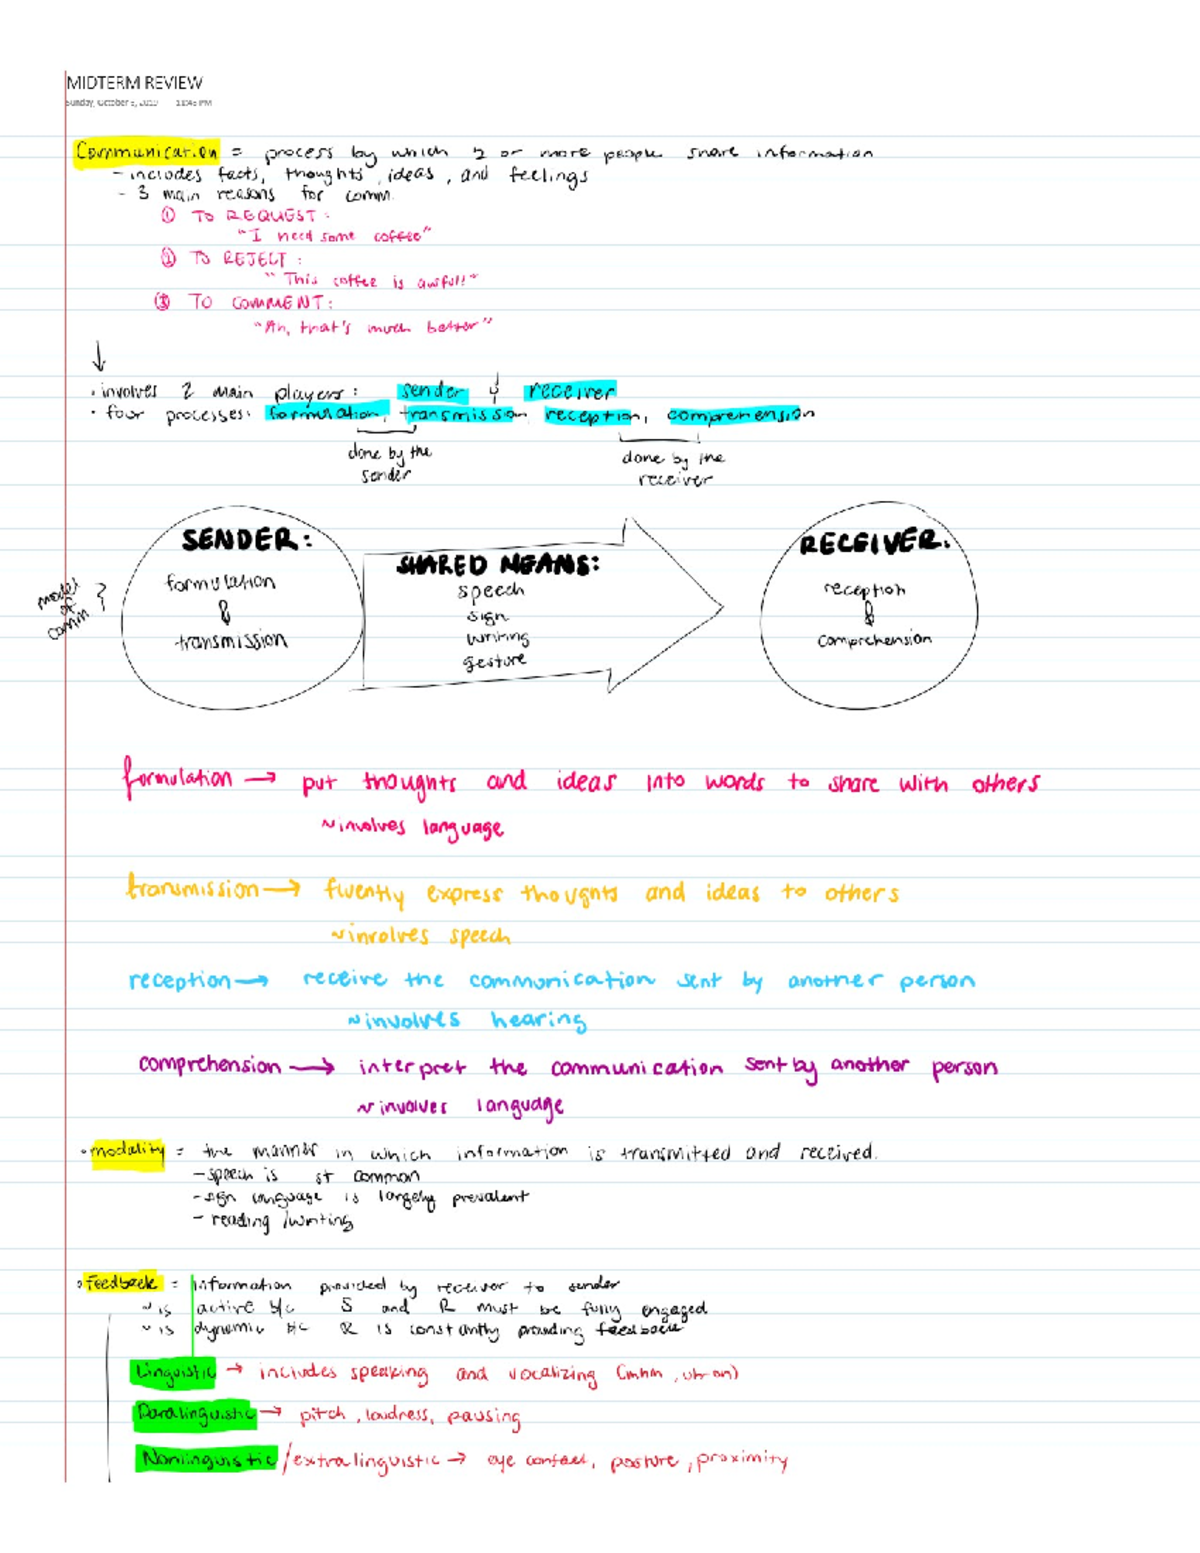 MIDTERM REVIEW
Sunday, October 6, 2019 11:48 PM
Communication = process by which 2 or more people share information
- includes facts, thoughts, ideas, and feelings
- 3 main reasons for comm.
① TO REQUEST:
"I need some coffee"
② TO REJECT:
"This coffee is awful!"
③ TO COMMENT:
"Ah, that's much better"
↓
• involves 2 main players: sender & receiver
• four processes: formulation, transmission, reception, comprehension
done by the sender
done by the receiver
model of comm
SENDER:
formulation
&
transmission
SHARED MEANS:
speech
sign
writing
gesture
RECEIVER:
reception
&
comprehension
formulation → put thoughts and ideas into words to share with others
~involves language
transmission → fluently express thoughts and ideas to others
~involves speech
reception → receive the communication sent by another person
~involves hearing
comprehension → interpret the communication sent by another person
~involves language
• modality = the manner in which information is transmitted and received.
- speech is st common
- sign language is largely prevalent
- reading/writing
• Feedback = information provided by receiver to sender
~ is active b/c S and R must be fully engaged
~ is dynamic b/c R is constantly providing feedback
Linguistic → includes speaking and vocalizing (mhm, uh-oh)
Paralinguistic → pitch, loudness, pausing
Nonlinguistic/extralinguistic → eye contact, posture, proximity